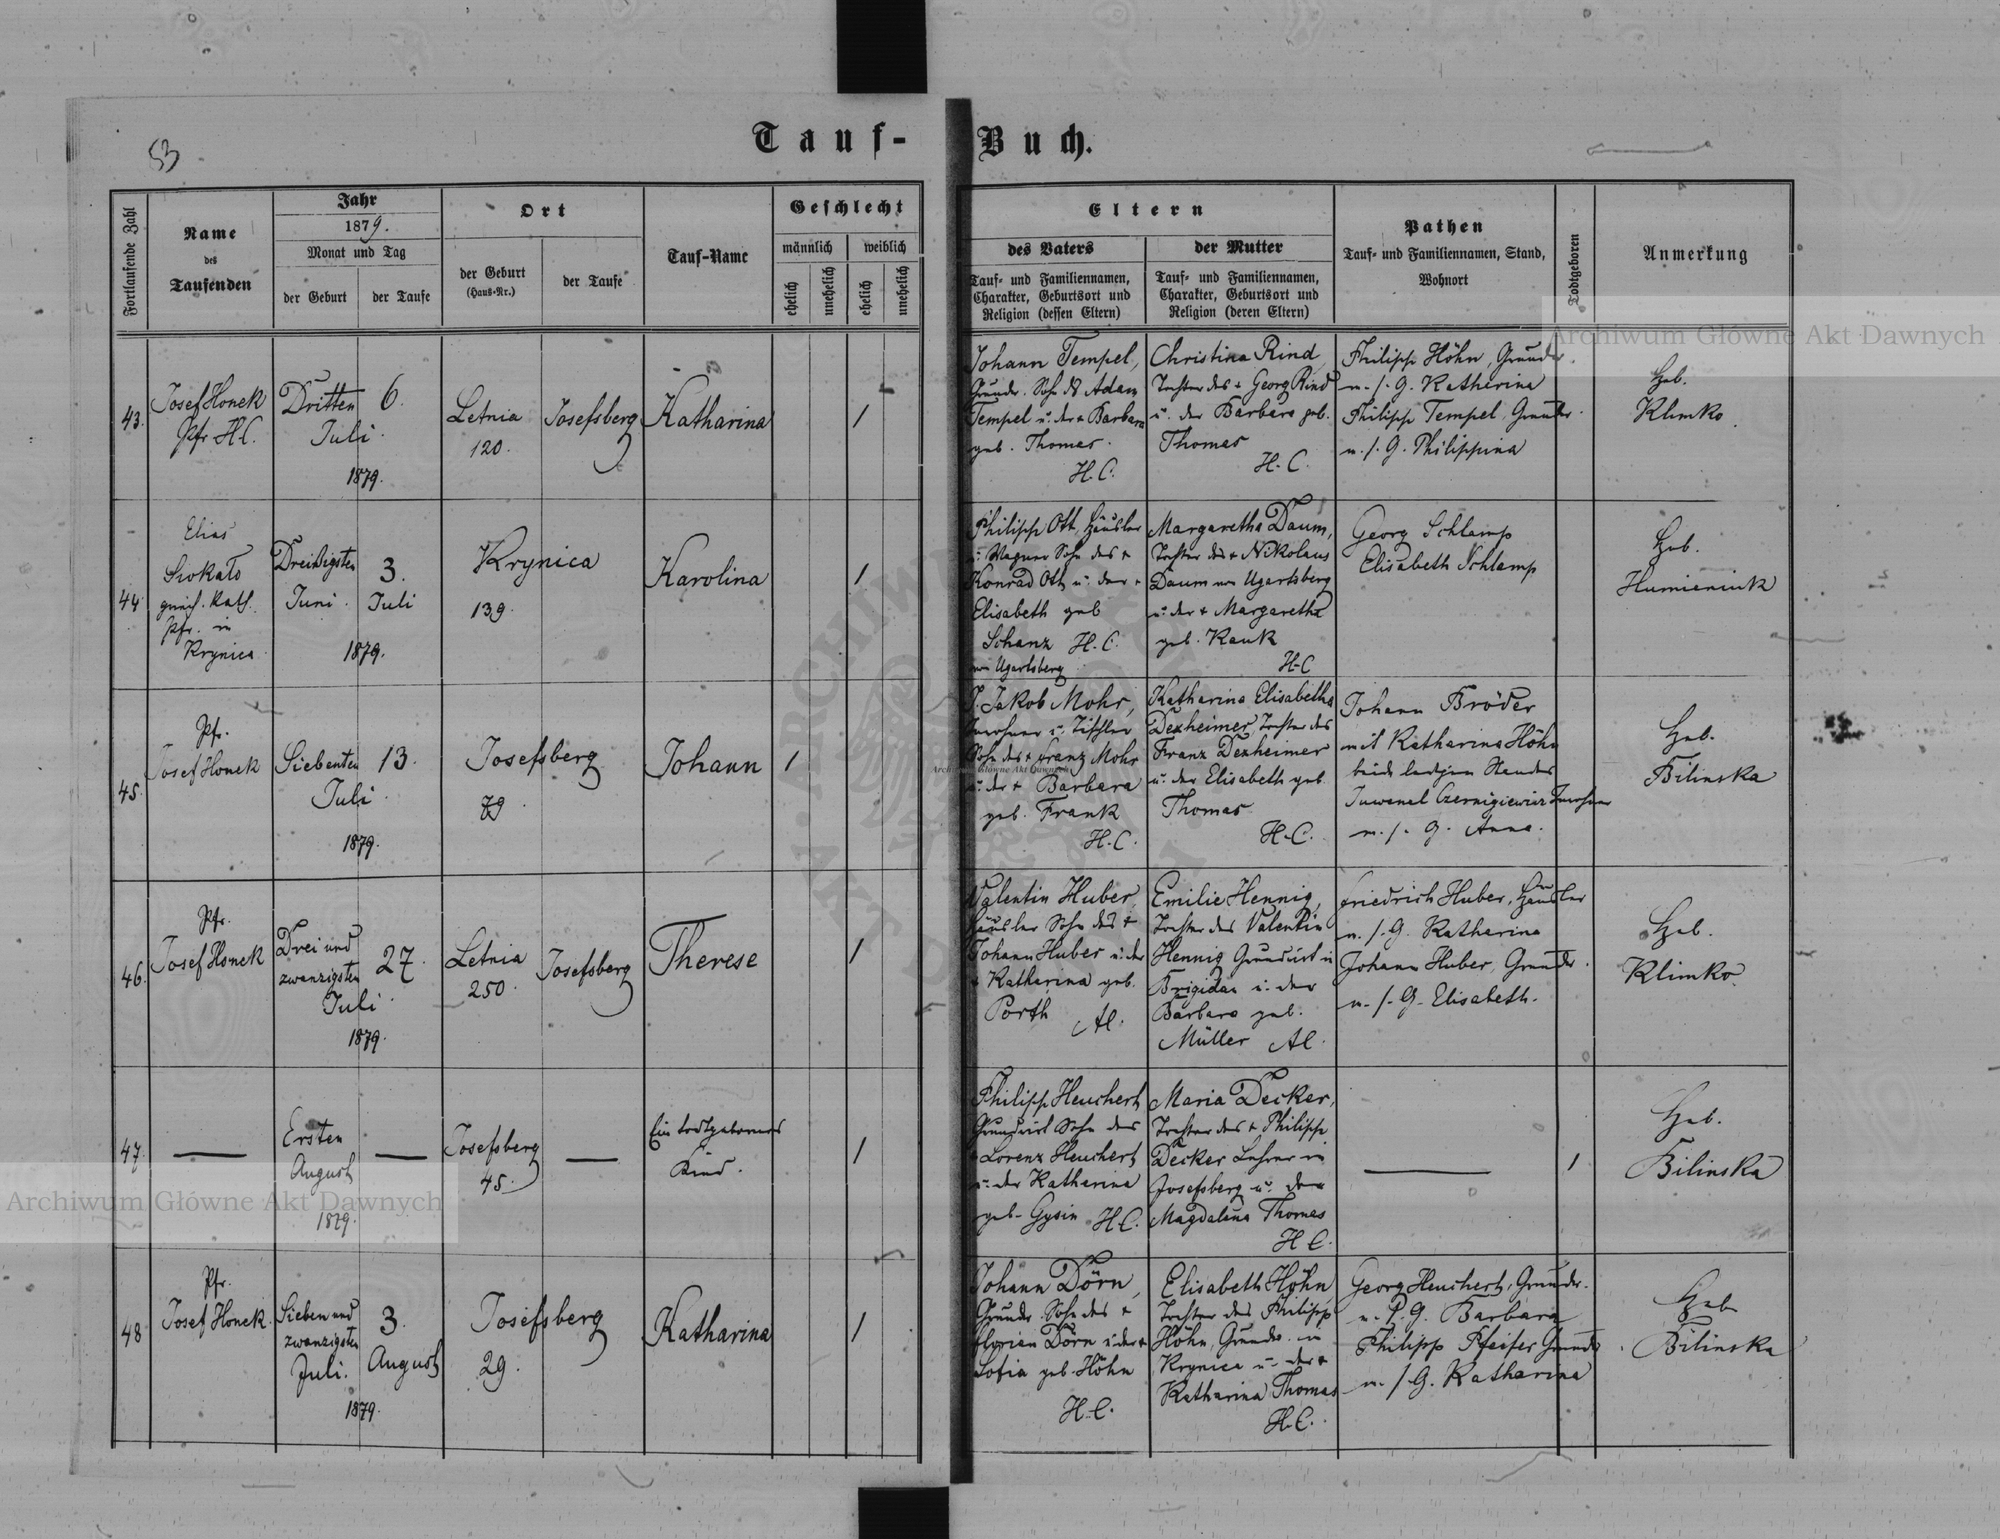 53
Tauf-Buch.
Fortlaufende Zahl
Name
des
Taufenden
Jahr
1879.
Monat und Tag
der Geburt
der Taufe
Ort
der Geburt
(Haus-Nr.)
der Taufe
Tauf-Name
Geschlecht
männlich
weiblich
ehelich
unehelich
ehelich
unehelich
Eltern
des Vaters
Tauf- und Familiennamen,
Charakter, Geburtsort und
Religion (dessen Eltern)
der Mutter
Tauf- und Familiennamen,
Charakter, Geburtsort und
Religion (deren Eltern)
Pathen
Tauf- und Familiennamen, Stand,
Wohnort
Todtgeboren
Anmerkung
43.
Josef Honek
Pfr. H.C.
Dritten
Juli.
1879.
6.
Letnia
120.
Josefsberg
Katharina
1
Johann Tempel,
Grundr. Sohn ds Adam
Tempel u. der + Barbara
geb. Thomas.
H.C.
Christina Rind
Tochter des + Georg Rind
u. der Barbara geb.
Thomas
H.C.
Philipp Höhn, Grundr.
u. s. G. Katharina
Philipp Tempel, Grundr.
u. s. G. Philippina
Heb.
Klimko.
44.
Elias
Sιokało
griech. Kath.
Pfr. in
Krynica
Dreißigsten
Juni.
1879.
3.
Juli
Krynica
139.
Karolina
1
Philipp Ott, Häusler
u. Wagner Sohn des +
Konrad Ott u. der +
Elisabeth geb
Schanz H.C.
von Ugartsberg
Margaretha Daum,
Tochter des + Nikolaus
Daum von Ugartsberg
u. der + Margaretha
geb. Kauk
H.C
Georg Schlamp
Elisabeth Schlamp
Heb.
Humieniuk
45.
Pfr.
Josef Honek
Siebenten
Juli.
1879.
13.
Josefsberg
79.
Johann
1
J. Jakob Mohr,
Inwohner u. Tischler
Sohn des + Franz Mohr
u. der + Barbara
geb. Frank
H.C.
Katharina Elisabetha
Dexheimer, Tochter des
Franz Dexheimer
u. der Elisabeth geb.
Thomas
H.C.
Johann Bröder
mit Katharina Höhn
beide ledigen Standes
Juwenal Czernigiewicz Inwohner
u. s. G. Anna.
Heb.
Bilinska
46.
Pfr.
Josef Honek
Drei und
zwanzigsten
Juli.
1879.
27.
Letnia
250.
Josefsberg
Therese
1
Valentin Huber,
Häusler Sohn des +
Johann Huber u. der
+ Katharina geb.
Porth
AC.
Emilie Hennig,
Tochter des Valentin
Hennig Grundwirt in
Brigidau u. der
Barbara geb.
Müller AC.
Friedrich Huber, Häusler
u. s. G. Katharina
Johann Huber, Grundr.
u. s. G. Elisabeth.
Heb.
Klimko.
47.
Ersten
August
1879.
Josefsberg
45.
Ein todtgebornes
Kind.
1
Philipp Heuchert
Grundwirt Sohn des
+ Lorenz Heuchert
u. der Katharina
geb. Gysin H.C.
Maria Decker,
Tochter des + Philipp
Decker Lehrer in
Josefsberg u. der
Magdalena Thomas
H.C.
1
Heb.
Bilinska
48.
Pfr.
Josef Honek.
Sieben und
zwanzigsten
Juli.
1879.
3.
August
Josefsberg
29.
Katharina
1
Johann Dörn,
Grundr. Sohn des +
Florian Dörn u. der +
Sofia geb. Höhn
H.C.
Elisabeth Höhn
Tochter des Philipp
Höhn, Grundr. in
Krynica u. der +
Katharina Thomas
H.C.
Georg Heuchert, Grundr.
u. s. G. Barbara
Philipp Pfeifer Grundr.
u. s. G. Katharina
Heb
Bilinska
Archiwum Główne Akt Dawnych
Archiwum Główne Akt Dawnych
Archiwum Główne Akt Dawnych